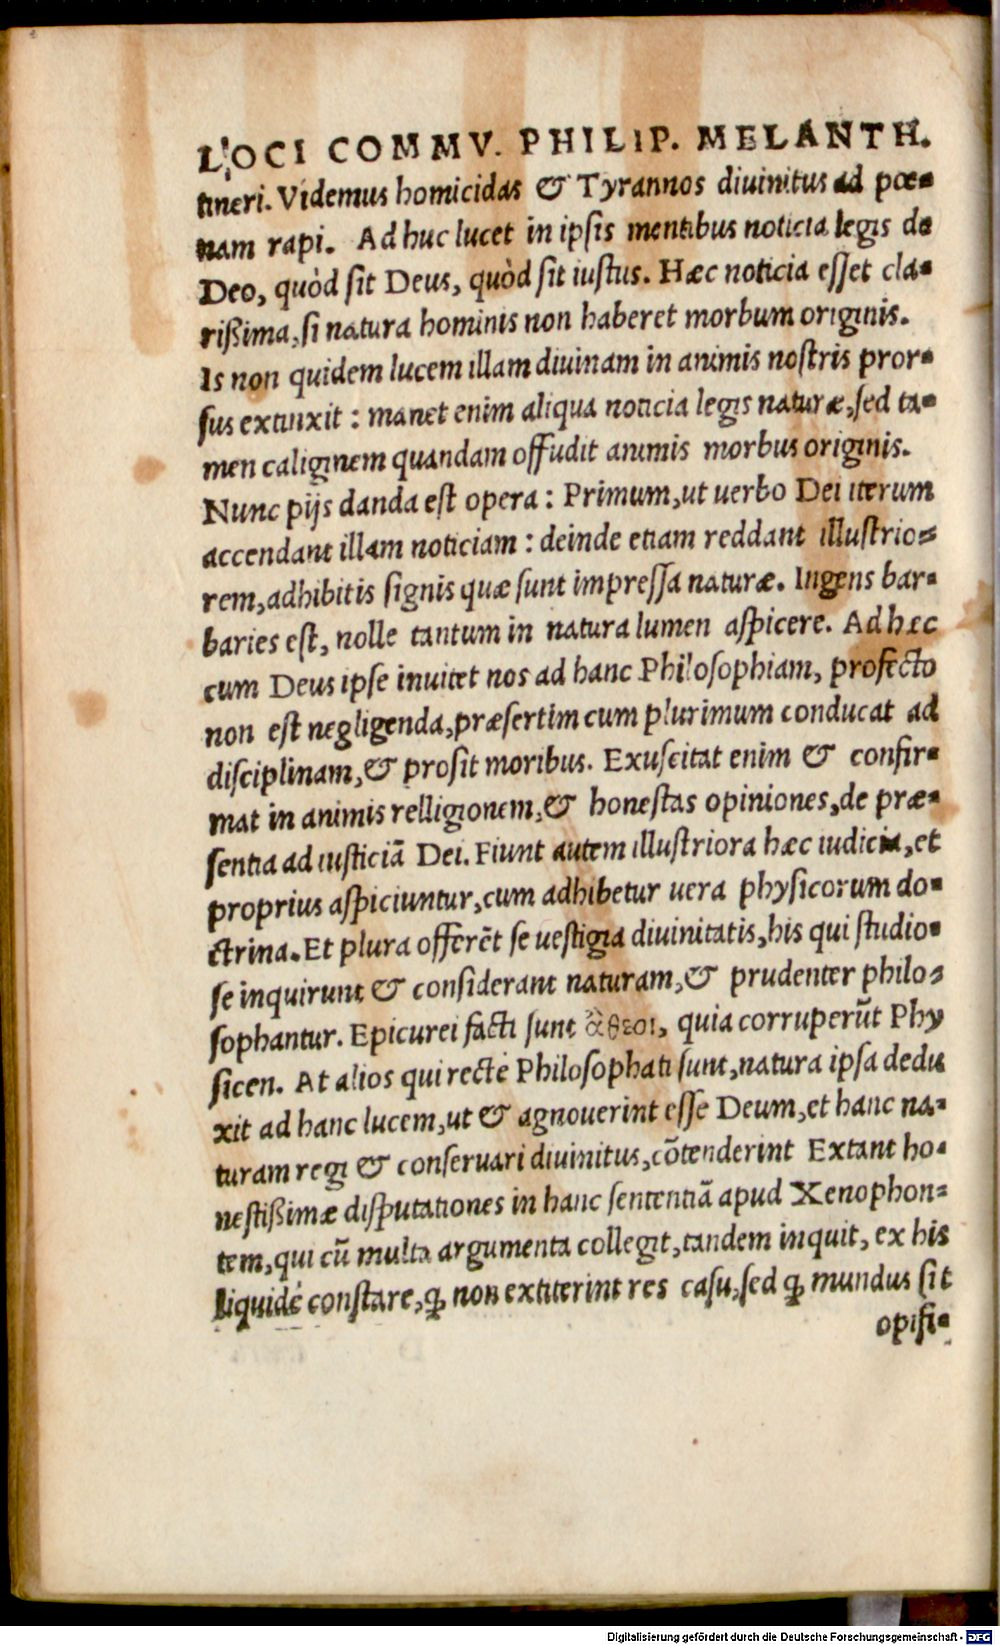 LOCI COMMV. PHILIP. MELANTH.
tineri. Videmus homicidas & Tyrannos diuinitus ad pœ-
nam rapi. Ad huc lucet in ipsis mentibus noticia legis de
Deo, quòd sit Deus, quòd sit iustus. Hæc noticia esset cla-
rißima, si natura hominis non haberet morbum originis.
Is non quidem lucem illam diuinam in animis nostris pror-
sus extinxit: manet enim aliqua noticia legis naturæ, sed ta-
men caliginem quandam offudit animis morbus originis.
Nunc pijs danda est opera: Primum, ut uerbo Dei iterum
accendant illam noticiam: deinde etiam reddant illustrio-
rem, adhibitis signis quæ sunt impressa naturæ. Ingens bar-
baries est, nolle tantum in natura lumen aspicere. Ad hæc
cum Deus ipse inuitet nos ad hanc Philosophiam, profecto
non est negligenda, præsertim cum plurimum conducat ad
disciplinam, & prosit moribus. Exuscitat enim & confir-
mat in animis relligionem, & honestas opiniones, de præ-
sentia ad iusticiã Dei. Fiunt autem illustriora hæc iudicia, et
proprius aspiciuntur, cum adhibetur uera physicorum do-
ctrina. Et plura offerẽt se uestigia diuinitatis, his qui studio-
se inquirunt & considerant naturam, & prudenter philo-
sophantur. Epicurei facti sunt ἄθεοι, quia corruperũt Phy
sicen. At alios qui rectè Philosophati sunt, natura ipsa dedu
xit ad hanc lucem, ut & agnouerint esse Deum, et hanc na-
turam regi & conseruari diuinitus, cõtenderint Extant ho-
nestißimæ disputationes in hanc sententiã apud Xenophon-
tem, qui cũ multa argumenta collegit, tandem inquit, ex his
liquidè constare, ꝙ non extiterint res casu, sed ꝙ mundus sit
opifi-
Digitalisierung gefördert durch die Deutsche Forschungsgemeinschaft - DFG